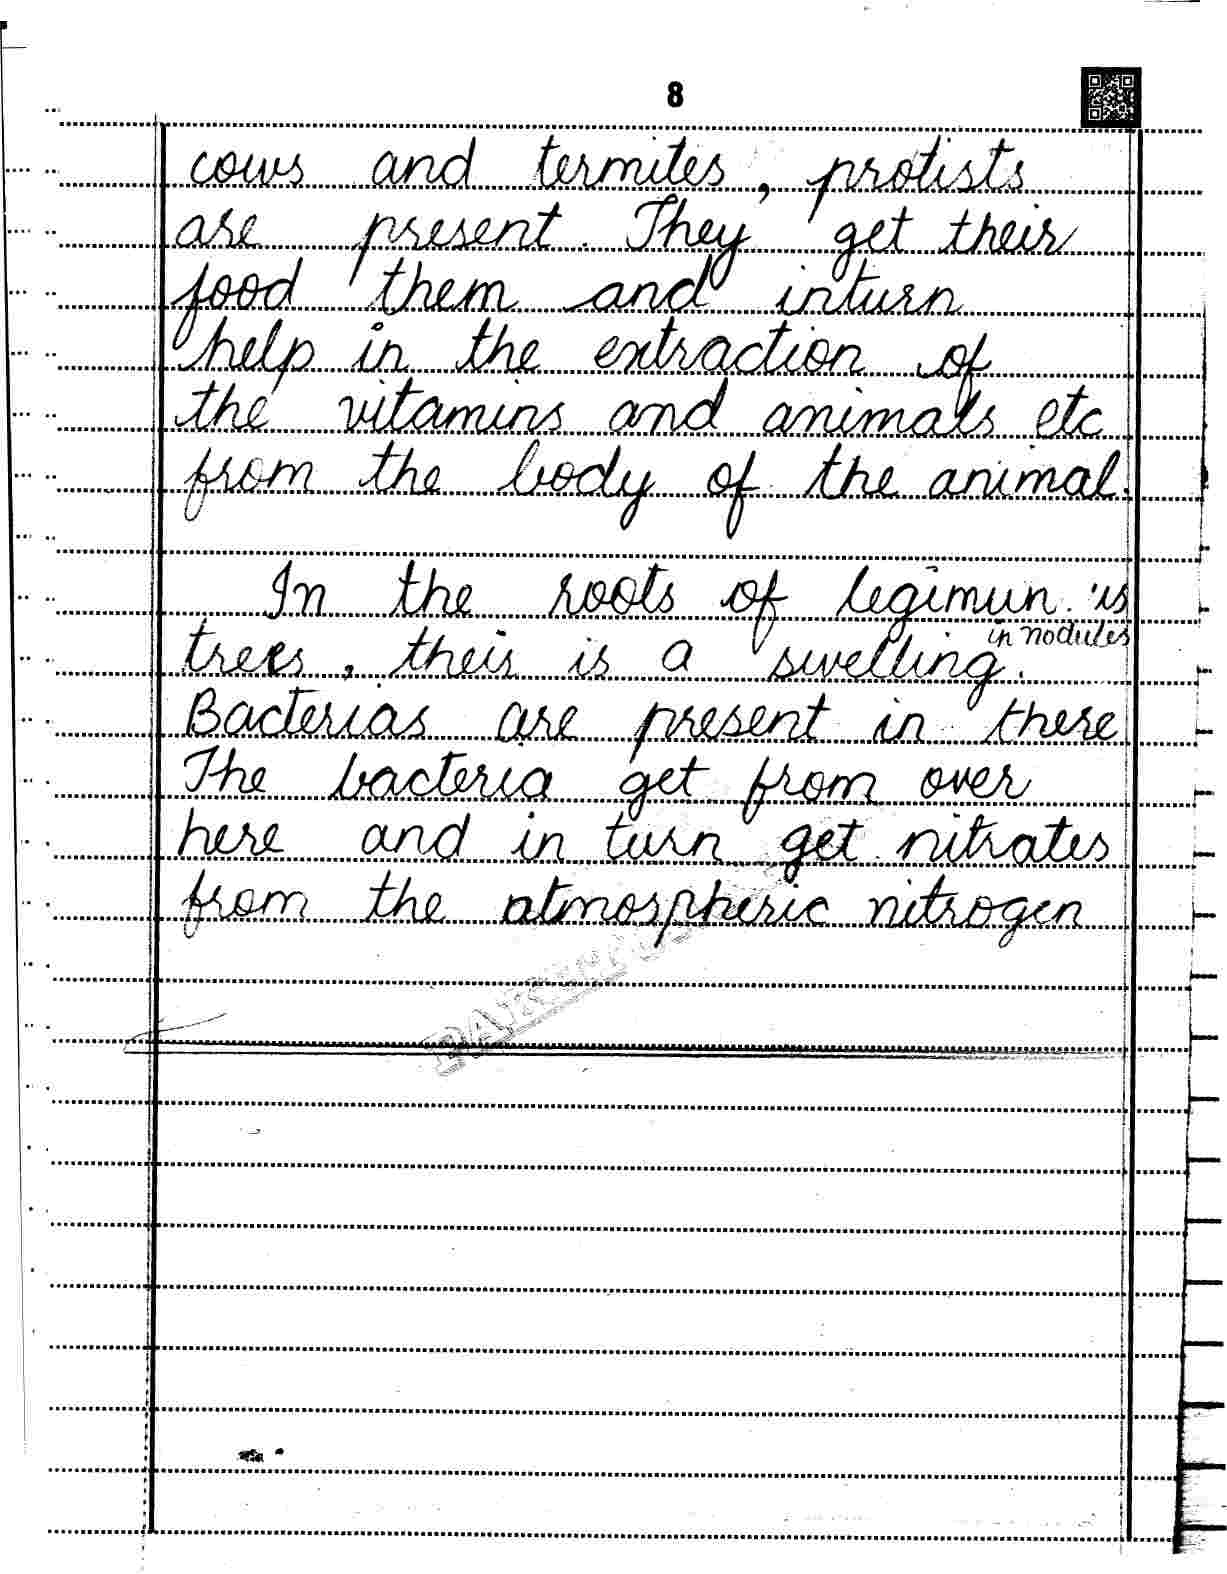 8
cows and termites, protists
are present. They get their
food them and inturn
help in the extraction of
the vitamins and animals etc
from the body of the animal.
In the roots of legimun is
in nodules
trees, their is a swelling.
Bacterias are present in there
The bacteria get from over
here and in turn get nitrates
from the atmospheric nitrogen